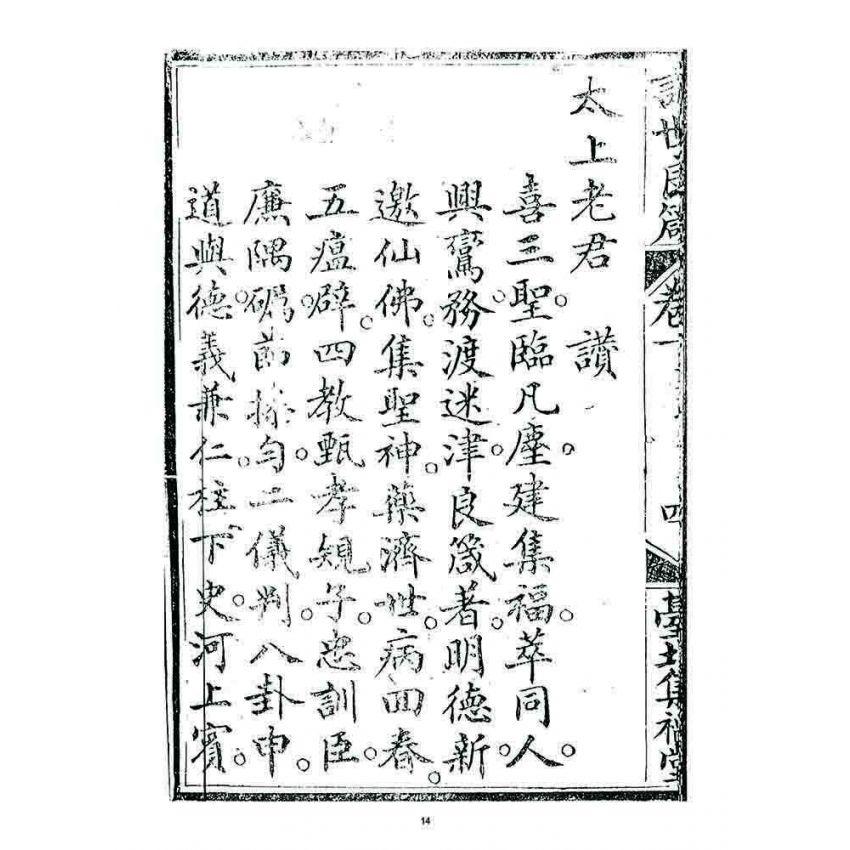 訓世良箴 卷一 四 臺北集福堂
太上老君 讚
喜三聖。臨凡塵。建集福。萃同人。
興鸞務。渡迷津。良箴著。明德新。
邀仙佛。集聖神。藥濟世。病回春。
五瘟辟。四教甄。孝規子。忠訓臣。
廉隅礪。節操勻。二儀判。八卦申。
道與德。義兼仁。柱下史。河上賓。
14